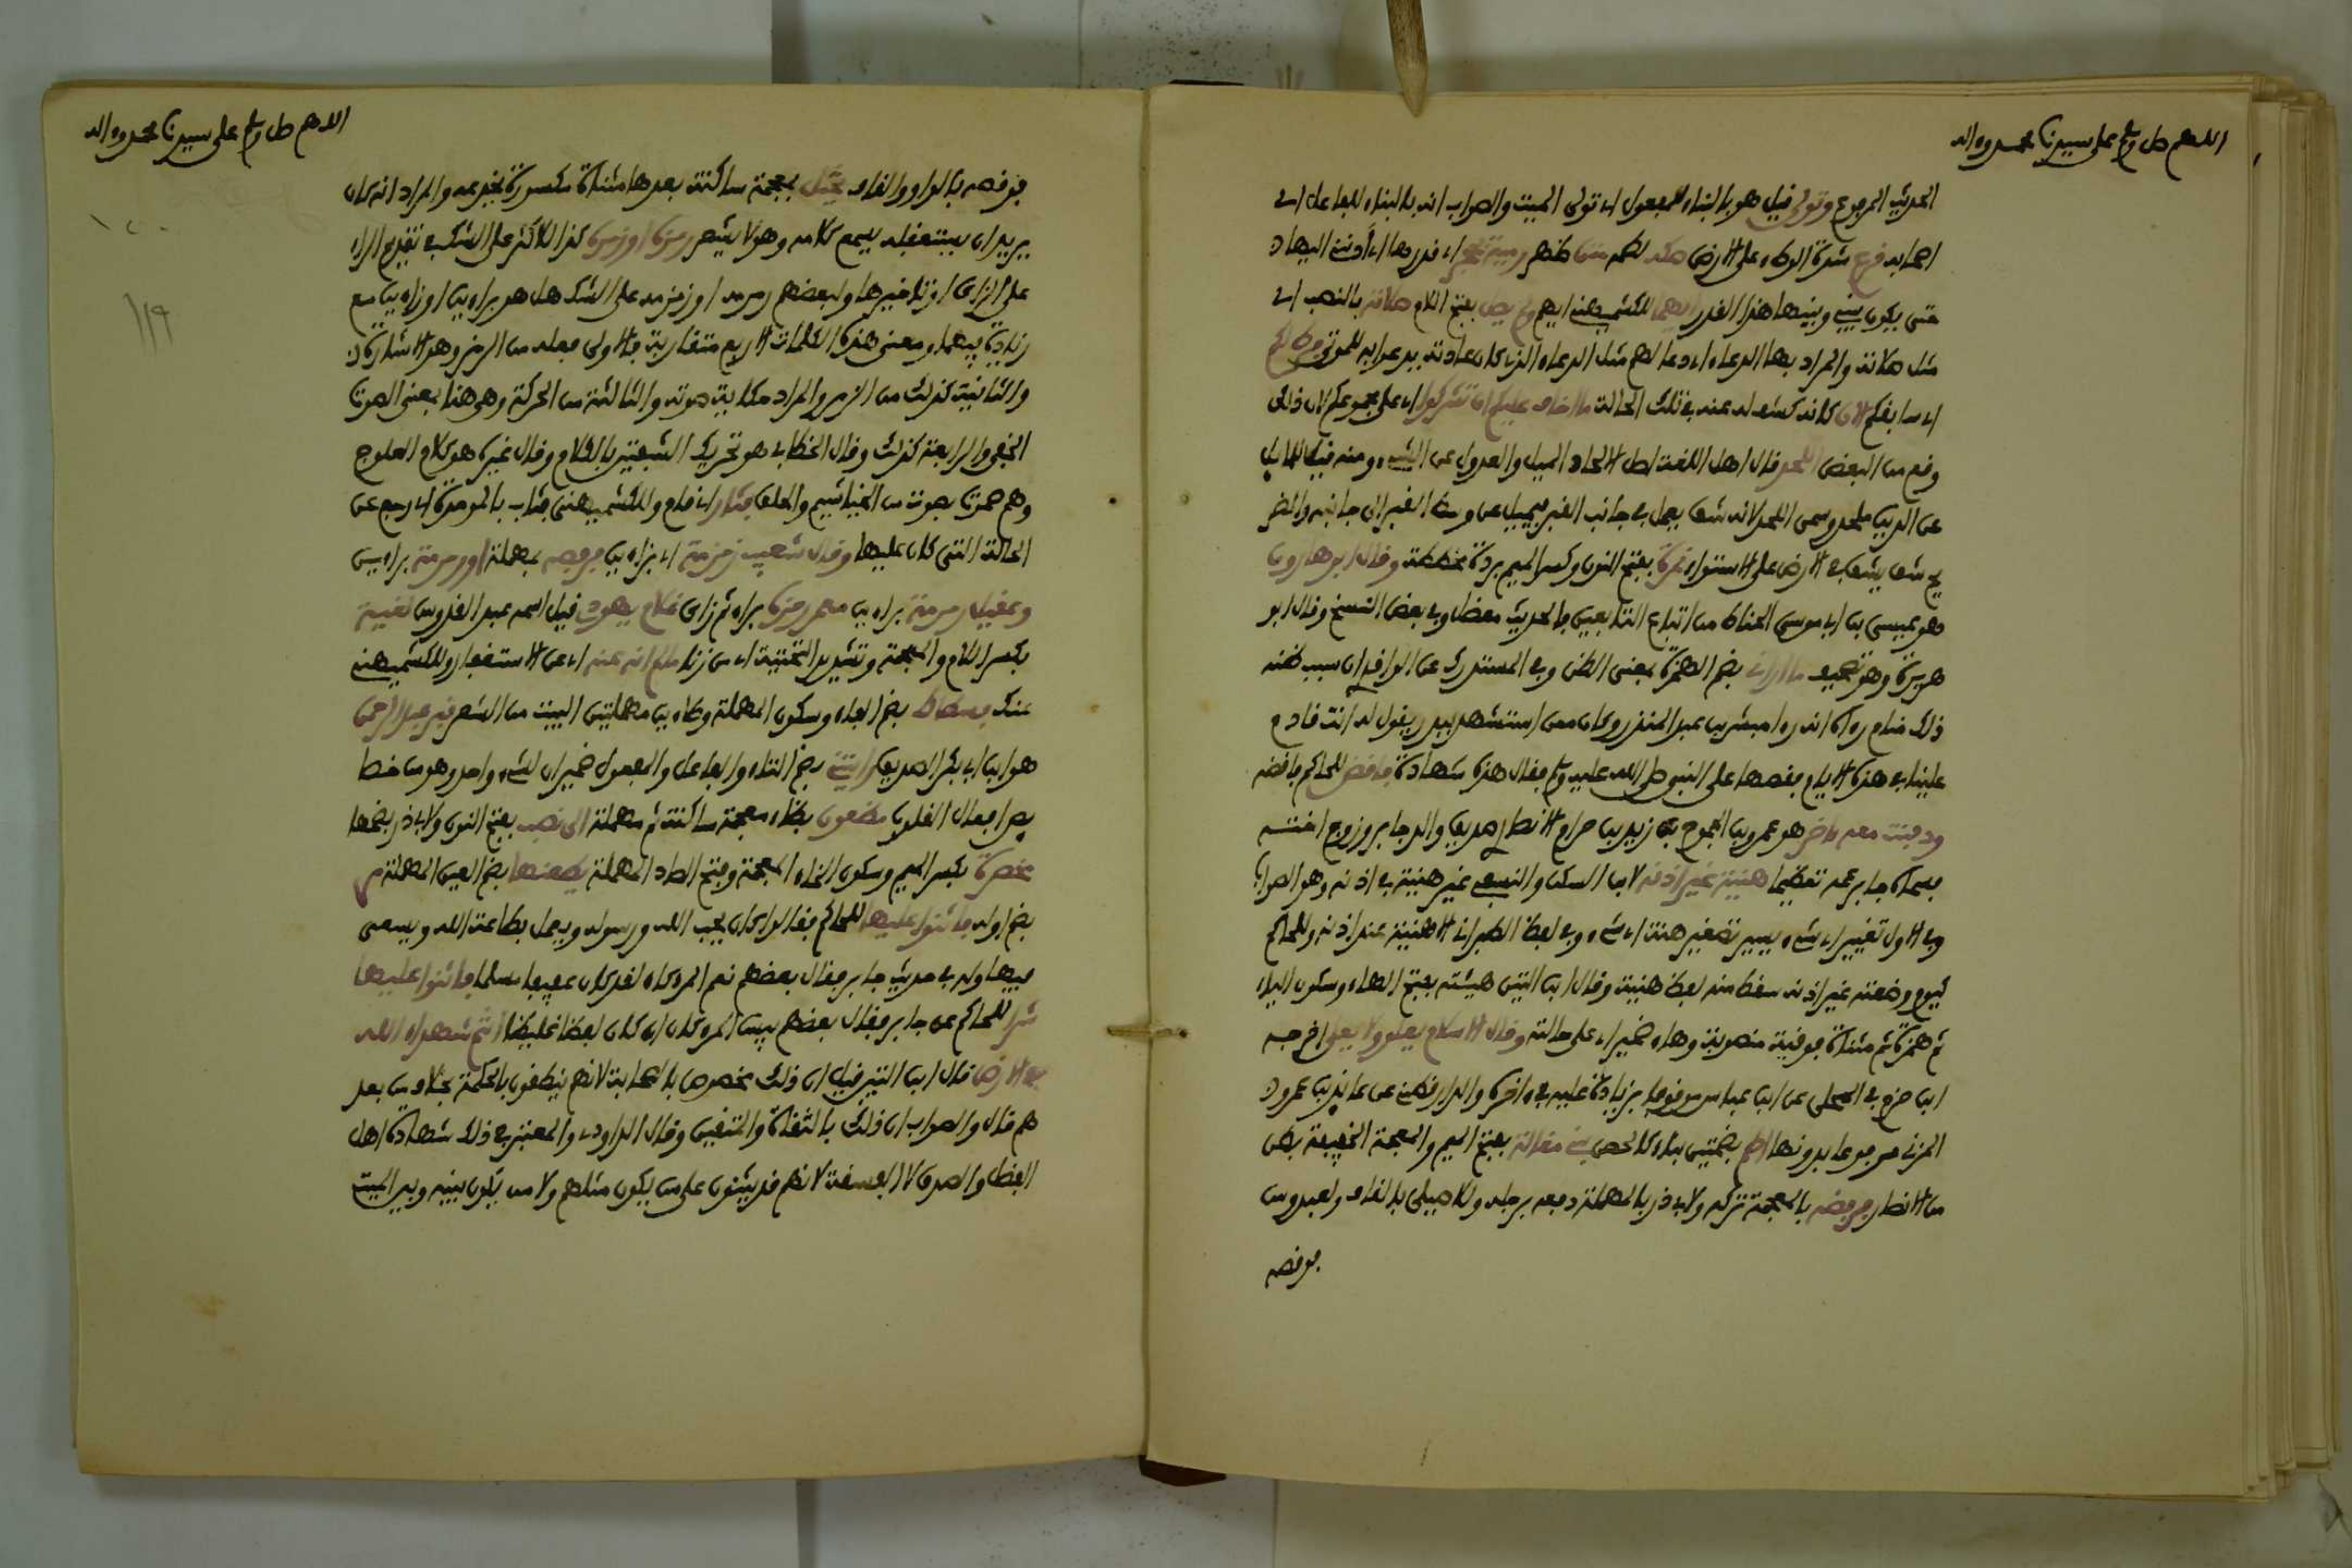 اللهم صل وسلم على سيدنا محمد وءاله
الحديث المرفوع وتولى قيل هو بالبناء للمفعول أي تولى الميت والصواب انه بالبناء للفاعل أي
اصحابه قرع شدة الوطء على الارض صكه لطمه متن ظهر رمية بحجر أي قدرها أي أدنني اليها
حتى يكون بيني وبينها هذا القدر للكشميهني ايهم ولم يصل بفتح اللام صلاته بالنصب أي
مثل صلاته والمراد بها الدعاء أي دعا لهم مثل الدعاء الذي كان عادته يدعوا به للموتى فرطكم
أي سابقكم الان كانه كشف له عنه في تلك الحالة ما اخاف عليكم ان تشركوا أي على مجموعكم لان ذلك
وقع من البعض اللحد قال اهل اللغة اصل الالحاد الميل والعدول عن الشيء ومنه قيل للمايل
عن الدين ملحد وسمى اللحد لانه شق يعمل في جانب القبر فيميل عن وسط القبر الى جانبه والضر
يح شق يشق في الارض على الاستواء نمرة بفتح النون وكسر الميم بردة مخططة وقال ابو هارون
هو عيسى بن ابي موسى الحناط من اتباع التابعين فالحديث معضل وفي بعض النسخ وقال ابو
هريرة وهو تصحيف ما أراني بضم الهمزة بمعنى الظن وفي المستدرك عن الواقدي ان سبب ظنه
ذلك منام رءاه انه رءا مبشر بن عبد المنذر وكان ممن استشهد ببدر يقول له انت قادم
علينا في هذه الايام فقصها على النبي صلى الله عليه وسلم فقال هذه شهادة فاقض للحاكم فاقضه
ودفنت معه ءاخر هو عمرو بن الجموح بن زيد بن حرام الانصاري صديق والد جابر وزوج اخته
فسماه جابر عمه تعظيما هنية غير اذنه لابن السكن والنسفي غير هنية في اذنه وهو الصواب
وفي الاول تغيير أي شيء يسير تصغير هنة أي شيء وفي لفظ الطبراني الا هنية عند اذنه وللحاكم
كيوم وضعته غير اذنه سقط منه لفظ هنية وقال ابن التين هيئته بفتح الهاء وسكون الياء
ثم همزة ثم مثناة فوقية منصوبة وهاء ضمير أي على حالته وقال الاسلام يعلو ولا يعلى اخرجه
ابن حزم في المحلى عن ابن عباس موقوفا بزيادة عليه في ءاخره والدارقطني عن عايذ بن عمرو
المزني مرفوعا بدونها اطم بضمتين بناء كالحصن بني مغالة بفتح الميم والمعجمة الخفيفة بطن
من الانصار فرفضه بالمعجمة تركه ولابي ذر بالمهملة دفعه برجله وللاصيلي بالقاف ولعبدوس
فوقصه
اللهم صل وسلم على سيدنا محمد وءاله
فوقصه بالواو والقاف يختل بمعجمة ساكنة بعدها مثناة مكسورة يخدعه والمراد انه كان
يريد ان يستغفله يسمع كلامه وهو لا يشعر رمزة او زمرة كذا للاكثر على الشك في تقديم الراء
على الزاي او تاخيرها ولبعضهم رمرمه او زمزمه على الشك هل هو براءين او زاءين مع
زيادة ميم فيهما ومعنى هذه الكلمات الاربع متقاربة فالاولى فعله من الرمز وهو الاشارة
والثانية كذلك من الزمر والمراد حكاية صوته والثالثة من الحركة وهي هنا بمعنى الصوت
الخفي والرابعة كذلك وقال الخطابي هو تحريك الشفتين بالكلام وقال غيره هو كلام العلوج
وهم صموت بصوت من الخياشيم والحلق فثار أي قام وللكشميهني فثاب بالموحدة أي رجع عن
الحالة التي كان عليها وقال شعيب زمزمة أي بزاءين فرفصه بمهملة او رمرمة براءين
وعقيل رمرمة براءين معمر رمزة براء ثم زاي غلام يهودي قيل اسمه عبد القدوس لغية
بكسر اللام والمعجمة وتشديد التحتية أي من زنا فلم انه عنه أي عن الاستغفار وللكشميهني
عنك فسطاط بضم الفاء وسكون المهملة وطاءين مهملتين البيت من الشعر قبر عبد الرحمن
هو ابن ابي بكر الصديق رايتني بضم التاء والفاعل والمفعول ضميران لشيء واحد وهو من خصا
يص افعال القلوب مظعون بظاء معجمة ساكنة ثم مهملة الى نصب بفتح النون ولابي ذر بضمها
مخصرة بكسر الميم وسكون الخاء المعجمة وفتح الصاد المهملة يطعنها بضم العين المهملة مر
بضم اوله فاثنوا عليها للحاكم فقالوا كان يحب الله ورسوله ويعمل بطاعة الله ويسعى
فيها وله في حديث جابر فقال بعضهم نعم المرء كان لقد كان عفيفا مسلما فاثنوا عليها
شرا للحاكم عن جابر فقال بعضهم بيس المرء كان ان كان لفظا غليظا انتم شهداء الله
في الارض قال ابن التين قيل ان ذلك مخصوص بالصحابة لانهم ينطقون بالحكمة بخلاف من بعد
هم قال والصواب ان ذلك بالثقات والمتقين وقال الداودي والمعتبر في ذلك شهادة اهل
الفضل والصدق لا الفسقة لانهم قد يثنون على من يكون مثلهم ولا من يكون بينه وبين الميت